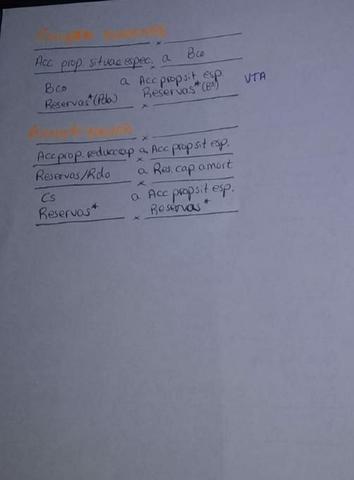 Acc prop situac espec. a Bco
Bco a Acc prop sit esp.
Reservas* (Pda) Reservas* (Bº) VTA
Acc prop. reducc cap a Acc prop sit esp.
Reservas/Rdo a Res. cap amort
Cs a Acc prop sit esp.
Reservas* Reservas*